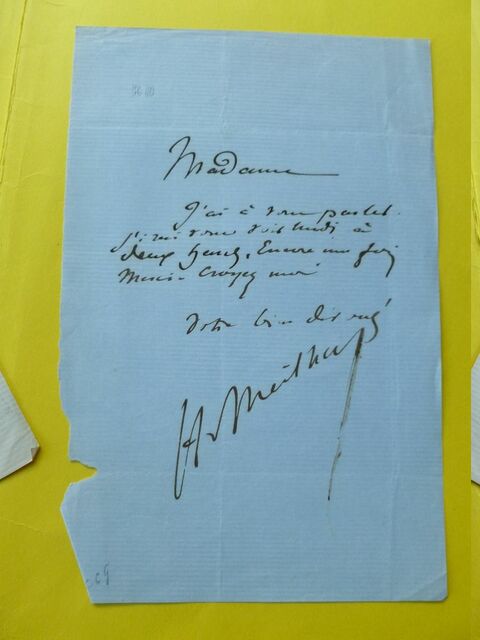 Madame
J'ai à vous parler.
J'irai vous voir lundi à
deux heures. Encore une fois
merci. Croyez moi
Votre bien dévoué
Hy Meilhac